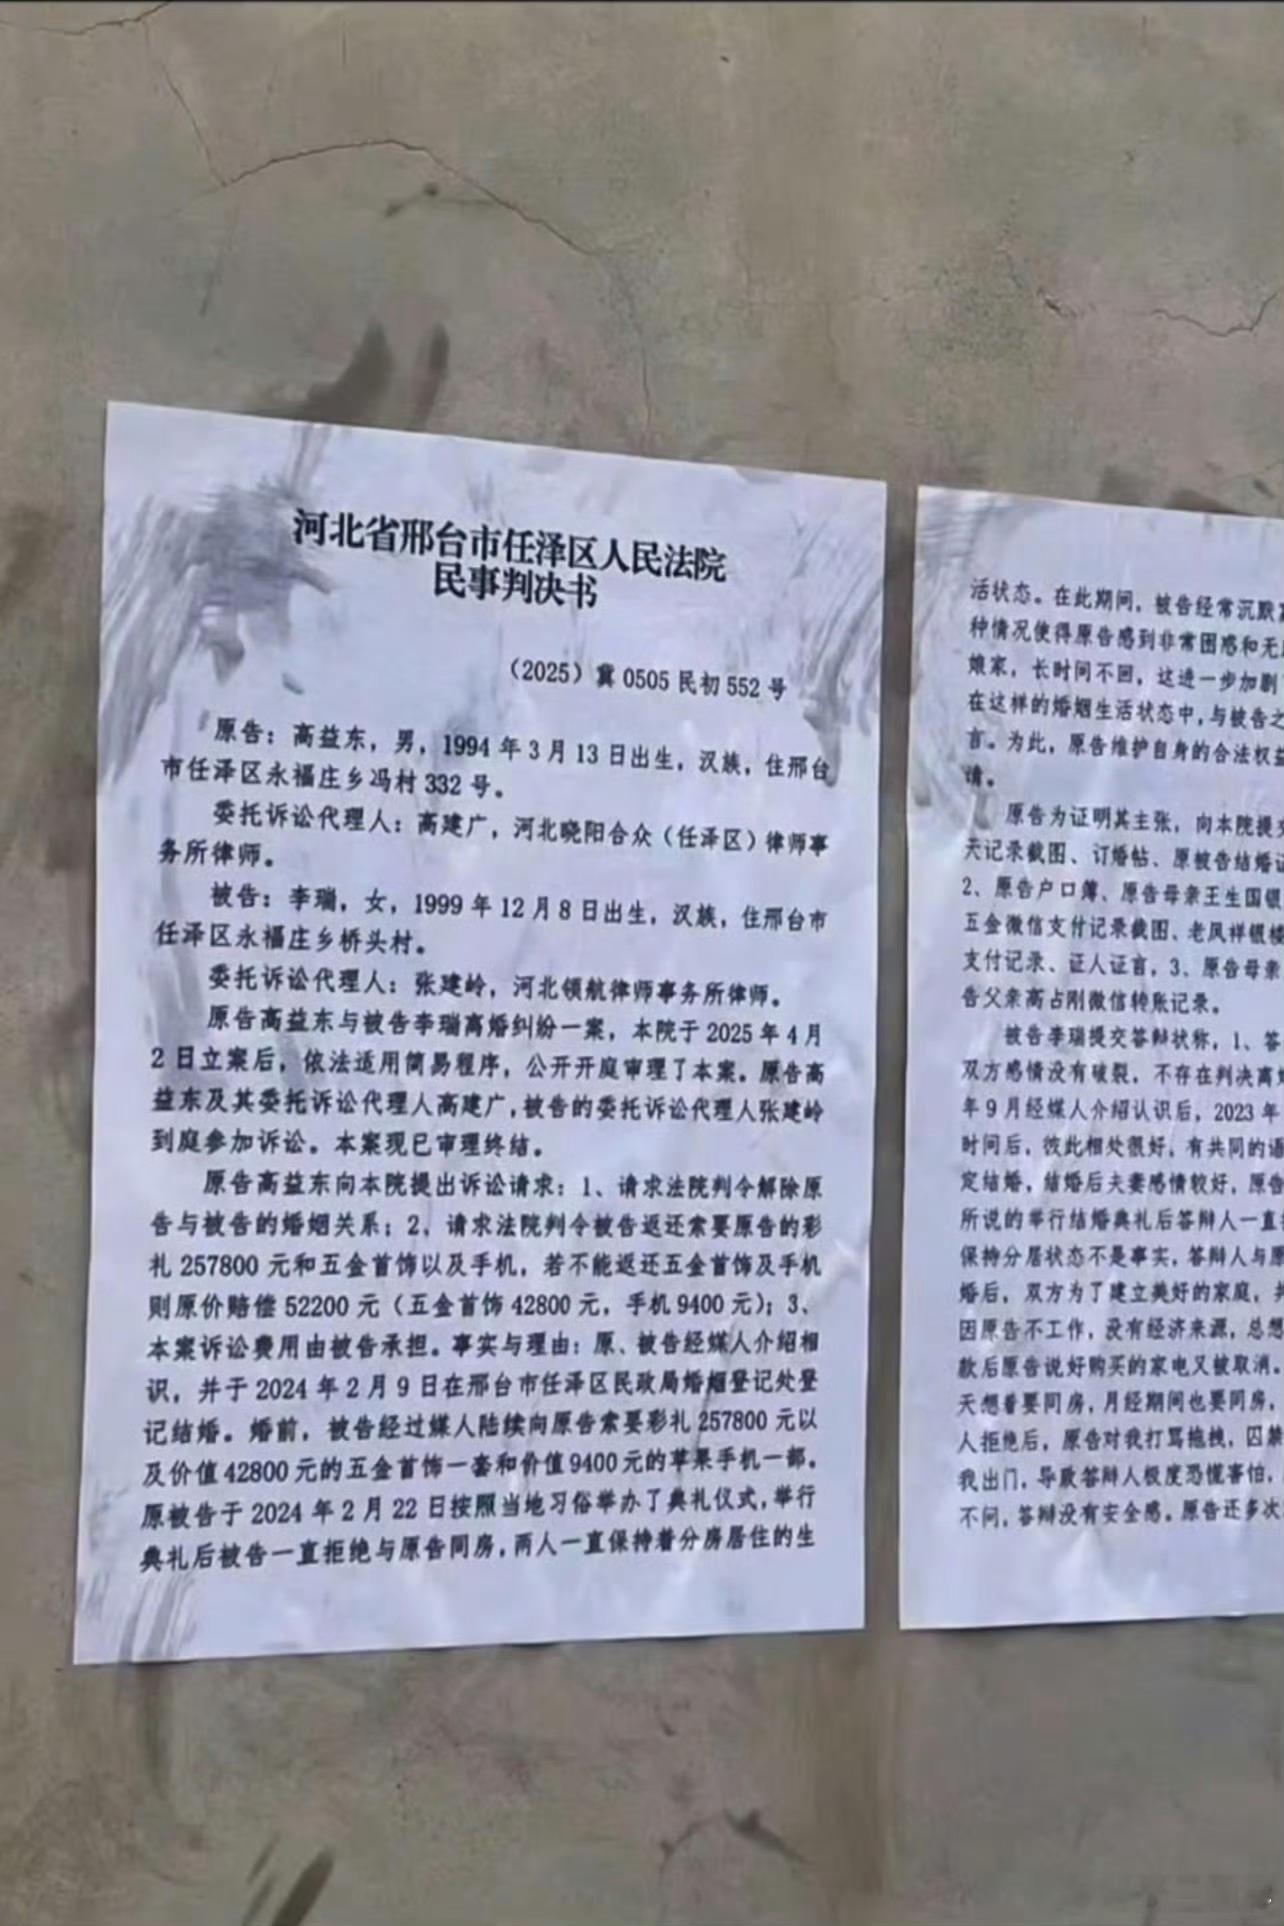 河北省邢台市任泽区人民法院
民事判决书
（2025）冀 0505 民初 552 号
原告：高益东，男，1994 年 3 月 13 日出生，汉族，住邢台
市任泽区永福庄乡冯村 332 号。
委托诉讼代理人：高建广，河北晓阳合众（任泽区）律师事
务所律师。
被告：李瑞，女，1999 年 12 月 8 日出生，汉族，住邢台市
任泽区永福庄乡桥头村。
委托诉讼代理人：张建岭，河北领航律师事务所律师。
原告高益东与被告李瑞离婚纠纷一案，本院于 2025 年 4 月
2 日立案后，依法适用简易程序，公开开庭审理了本案。原告高
益东及其委托诉讼代理人高建广，被告的委托诉讼代理人张建岭
到庭参加诉讼。本案现已审理终结。
原告高益东向本院提出诉讼请求：1、请求法院判令解除原
告与被告的婚姻关系；2、请求法院判令被告返还索要原告的彩
礼 257800 元和五金首饰以及手机，若不能返还五金首饰及手机
则原价赔偿 52200 元（五金首饰 42800 元，手机 9400 元）；3、
本案诉讼费用由被告承担。事实与理由：原、被告经媒人介绍相
识，并于 2024 年 2 月 9 日在邢台市任泽区民政局婚姻登记处登
记结婚。婚前，被告经过媒人陆续向原告索要彩礼 257800 元以
及价值 42800 元的五金首饰一套和价值 9400 元的苹果手机一部。
原被告于 2024 年 2 月 22 日按照当地习俗举办了典礼仪式，举行
典礼后被告一直拒绝与原告同房，两人一直保持着分房居住的生
活状态。在此期间，被告经常沉默
种情况使得原告感到非常困惑和无
娘家，长时间不回，这进一步加剧
在这样的婚姻生活状态中，与被告之
言。为此，原告维护自身的合法权益
请。
原告为证明其主张，向本院提交
天记录截图、订婚帖、原被告结婚证
2、原告户口簿、原告母亲王生国银
五金微信支付记录截图、老凤祥银楼
支付记录、证人证言，3、原告母亲
告父亲高占刚微信转账记录。
被告李瑞提交答辩状称，1、答
双方感情没有破裂，不存在判决离婚
年 9 月经媒人介绍认识后，2023 年
时间后，彼此相处很好，有共同的语
定结婚，结婚后夫妻感情较好，原告
所说的举行结婚典礼后答辩人一直
保持分居状态不是事实，答辩人与原
婚后，双方为了建立美好的家庭，共
因原告不工作，没有经济来源，总想
款后原告说好购买的家电又被取消。
天想着要同房，月经期间也要同房，
人拒绝后，原告对我打骂拖拽，囚禁
我出门，导致答辩人极度恐慌害怕，
不问，答辩没有安全感。原告还多次